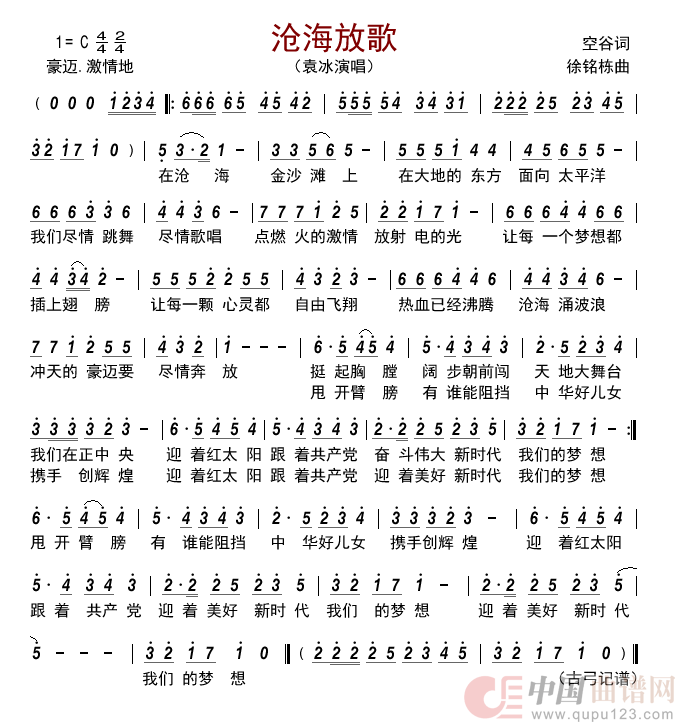 沧海放歌
1= C 4/4 2/4
空谷词
豪迈.激情地
（袁冰演唱）
徐铭栋曲
( 0 0 0 1234 ‖: 666 65 45 42 | 555 54 34 31 | 222 25 23 45 |
32 17 1 0 ) | 5 3·2 5 - | 3 3 5 6 5 - | 5 5 5 1 4 4 | 4 5 6 5 5 - |
在沧 海 金沙 滩 上 在大地的 东方 面向 太平洋
6 6 6 3 3 6 | 6 3 4 3 - | 7 7 7 1 2 5 | 2 2 1 7 1 - | 6 6 4 4 4 6 6 |
我们尽情 跳舞 尽情歌唱 点燃 火的激情 放射 电的光 让每 一个梦想都
4 4 34 2 - | 5 5 5 2 0 5 5 | 4 3 2 3 - | 6 6 6 6 1 6 | 5 6 5 4 4 - |
插上翅 膀 让每一颗 心灵都 自由飞翔 热血已经沸腾 沧海 涌波浪
7 7 1 2 5 5 | 4 3 2 | 1 - - - | 6· 5 45 4 | 5· 4 3 4 3 | 4· 3 2 3 2 |
冲天的 豪迈要 尽情奔 放 挺 起胸 膛 阔 步朝前闯 天 地大舞台
甩 开臂 膀 有 谁能阻挡 中 华好儿女
3 3 3 3 2 3 | 6· 5 4 5 4 | 5· 4 3 4 3 | 2· 2 2 5 2 3 5 | 3 2 1 7 1 - :‖
我们在正中 央 迎 着红太 阳 跟 着共产党 奋 斗伟大 新时代 我们的梦 想
携手 创辉 煌 迎 着红太 阳 跟 着共产党 迎 着美好 新时代 我们的梦 想
6· 5 4 5 4 | 5· 4 3 4 3 | 4· 3 2 3 2 | 3 3 3 2 3 | 6· 5 4 5 4 |
甩 开 臂 膀 有 谁能阻挡 中 华好儿女 携手创辉 煌 迎 着红太阳
5· 4 3 4 3 | 2· 2 2 5 2 3 5 | 3 2 1 7 1 - | 2· 2 2 5 2 3 5 |
跟 着 共产 党 迎 着 美好 新时 代 我们 的梦 想 迎 着 美好 新时 代
5 - - | 3 2 1 7 1 0 ‖ ( 2 2 2 2 5 | 2 3 5 5 | 3 2 1 7 1 0 ) ‖
我们 的梦 想
（古弓记谱）
中国曲谱网
www.qupu123.com